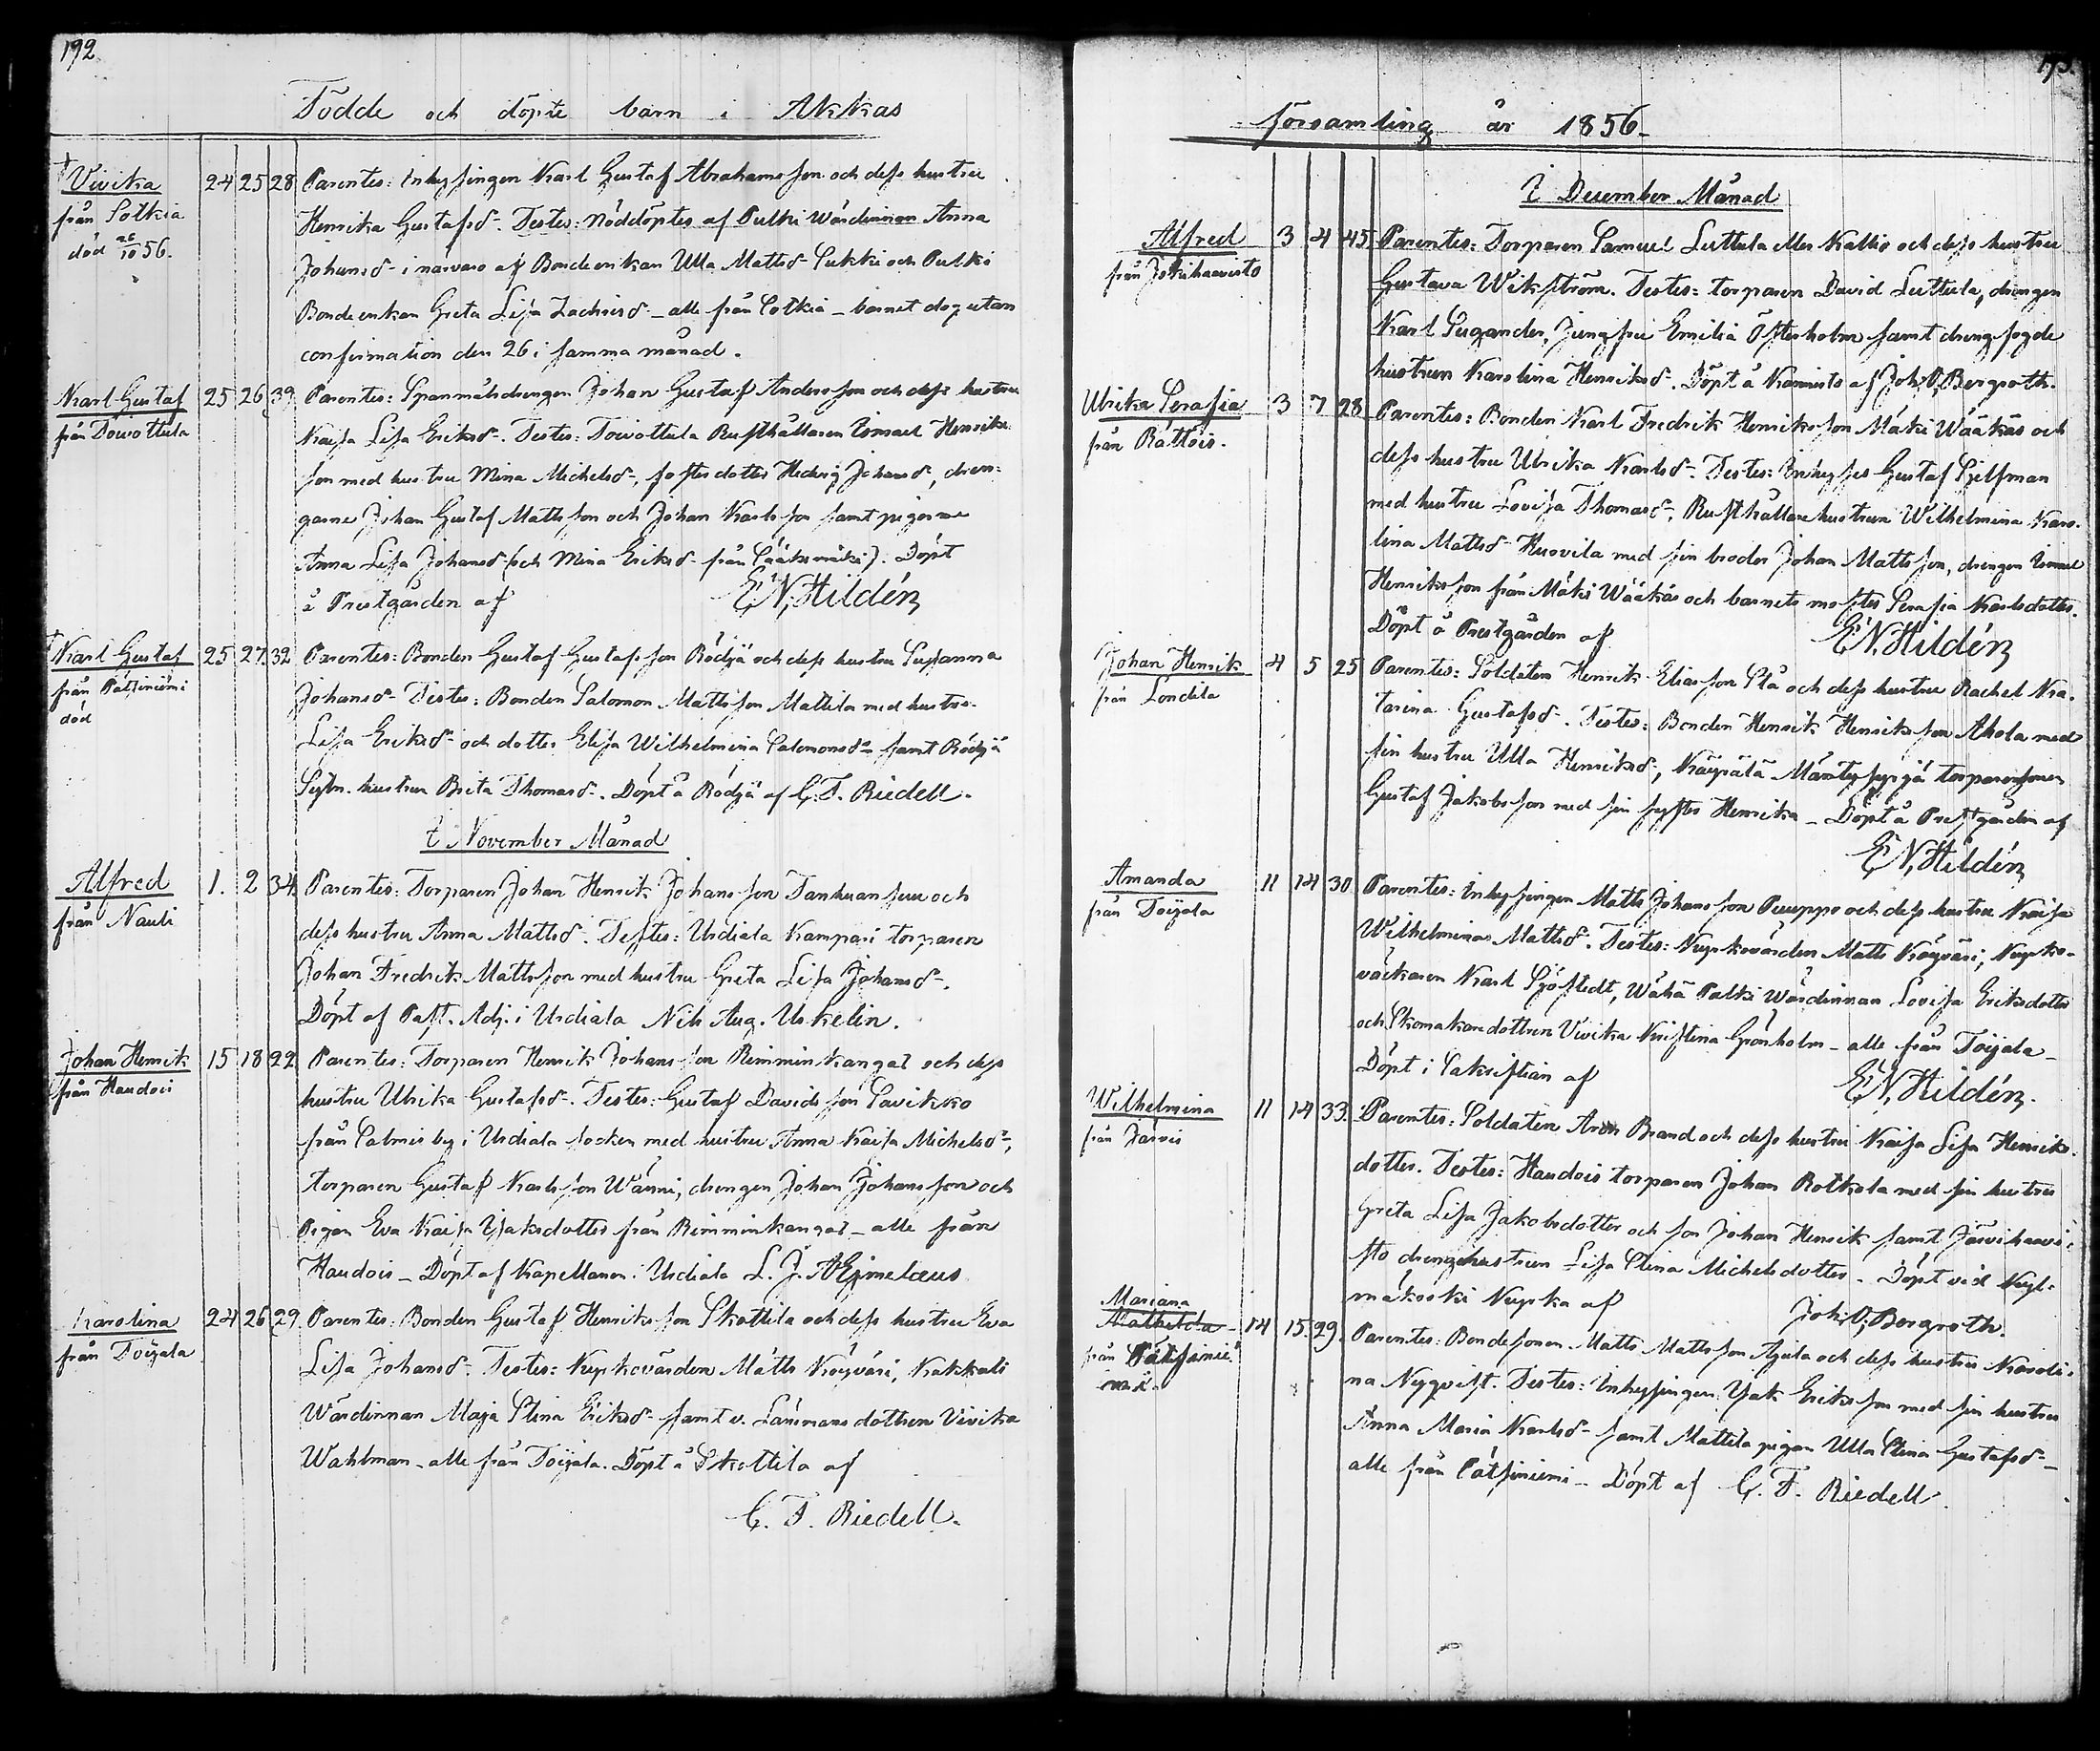 192
Födde och döpte barn i Akkas
Vivika 24 25 28 Parentes: Inhysingen Karl Gustaf Abrahamsson och dess hustru
från Sotkia Henrika Gustafsd. Testes: Nöddöptes af Pulki Wärdinnan Anna
död 26/10 56. Johansd. i närvaro af Bondeenkan Ulla Mattsd. Sukki och Pulki
Bondeenkan Greta Lisa Zachrisd. _ alle från Sotkia _ barnet dog utan
confirmation den 26 i samma månad.
Karl Gustaf 25 26 39 Parentes: Spannmålsdrengen Johan Gustaf Andersson och dess hustru
från Dowottula Kaisa Lisa Eriksd. Testes: Towottula Rusthållaren Ismael Henriks
son med hustru Mina Michelsd., fosterdotter Hedvig Johansd., dren-
garne Johan Gustaf Mattsson och Johan Karlsson samt pigorne
Anna Lisa Johansd (och Mina Eriksd. från Sääksmäki). Döpt
å Prestgården af E N, Hildén
Karl Gustaf 25 27 32 Parentes: Bonden Gustaf Gustafsson Rödjä och dess hustru Susanna
från Pätsiniemi Johansd. Testes: Bonden Salomon Mattsson Mattila med hustru
död Lisa Eriksd. och dotter Elisa Wilhelmina Salomonsdr samt Rödjä
hustrun Brita Thomasd. Döpt å Rödjä af C. F. Riedell.
I November Månad
Alfred 1. 2 34 Parentes: Torparen Johan Henrik Johansson Tanhuansuu och
från Nauli dess hustru Anna Mattsd. Testes: Urdiala Kampari torparen
Johan Fredrik Mattsson med hustru Greta Lisa Johansd.
Döpt af Past. Adj. i Urdiala Nils Aug. Uskelin.
Johan Henrik 15 18 22 Parentes: Torparen Henrik Johansson Rimminkangas och dess
från Haudois hustru Ulrika Gustafsd. Testes: Gustaf Davidsson Savikko
från Salmis by i Urdiala socken med hustru Anna Kaisa Michelsdr,
torparen Gustaf Karlsson Wänni, drengen Johan Johansson och
Pigan Eva Kaisa Isaksdotter från Rimminkangas _ alle från
Haudois _ Döpt af Kapellanen i Urdiala L. J. AEjmelæus
Karolina 24 26 29 Parentes: Bonden Gustaf Henriksson Skottila och dess hustru Eva
från Toijala Lisa Johansd. Testes: Nupkovärden Matts Köyväri, Kakkuli
Wärdinnan Maja Stina Eriksd. samt v. Länsmans dottren Vivika
Wahlman _ alle från Toijala. Döpt å Skottila af
C. F. Riedell.
församling år 1856_
I December Månad
Alfred 3 4 45 Parentes: Torparen Samuel Luttula eller Kallio och dess hustru
från Jokihaavisto Gustava Wikström. Testes: torparen David Luttula, drengen
Karl Sugander, Jungfru Emilia Österholm samt drengfogde
hustrun Karolina Henriksd. Döpt å Kannisto af Joh. O, Bergroth.
Ulrika Serafia 3 7 28 Parentes: Bonden Karl Fredrik Henriksson Mäki Wääkäs och
från Rättöis. dess hustru Ulrika Karlsd. Testes: Inhyses Gustaf Sjelfman
med hustru Lovisa Thomasd., Rusthållarehustrun Wilhelmina Karo-
lina Mattsd. Huovila med sin broder Johan Mattsson, drengen Ismael
Henriksson från Mäki Wääkäs och barnets moster Serafia Karlsdotter.
Döpt å Prestgården af E N. Hildén
Johan Henrik 4 5 25 Parentes: Soldaten Henrik Eliasson Stå och dess hustru Rachel Ka-
från Londila tarina Gustafsd. Testes: Bonden Henrik Henriksson Ahola med
sin hustru Ulla Henriksd., Käypälä torparesonen
Gustaf Jakobsson med sin syster Henrika _ Döpt å Prestgården af
E N, Hildén
Amanda 11 14 30 Parentes: Inhysingen Matts Johansson Puuppo och dess hustru Kaisa
från Toijala Wilhelmina Mattsd. Testes: Nupkovärden Matts Köyväri, Nupko-
väckaren Karl Sjöstedt, Wähä Palki Wärdinnan Lovisa Eriksdotter
och Skomakaredottren Vivika Kristina Grönholm _ alle från Toijala _
Döpt i Sakristian af E N, Hildén.
Wilhelmina 11 14 33. Parentes: Soldaten Brand och dess hustru Kaisa Lisa Henriks-
från Järvis dotter. Testes: Haudois torparen Johan Rotkola med sin hustru
Greta Lisa Jakobsdotter och son Johan Henrik samt Järvihaavi-
sto drenghustrun Lisa Stina Michelsdotter _ Döpt vid Kyl-
mäkoski Nupka af Joh. O, Bergroth.
Mariana
Mathilda 14 15 29. Parentes: Bondesonen Matts Mattsson Ajuta och dess hustru Karoli-
från Pätsinie- na Nyqvist. Testes: Inhysingen Isak Eriksson med sin hustru
mi. Anna Maria Karlsd. samt Mattila pigan Ulla Stina Gustafsd. _
alle från Pätsiniemi _ Döpt af C. F. Riedell.